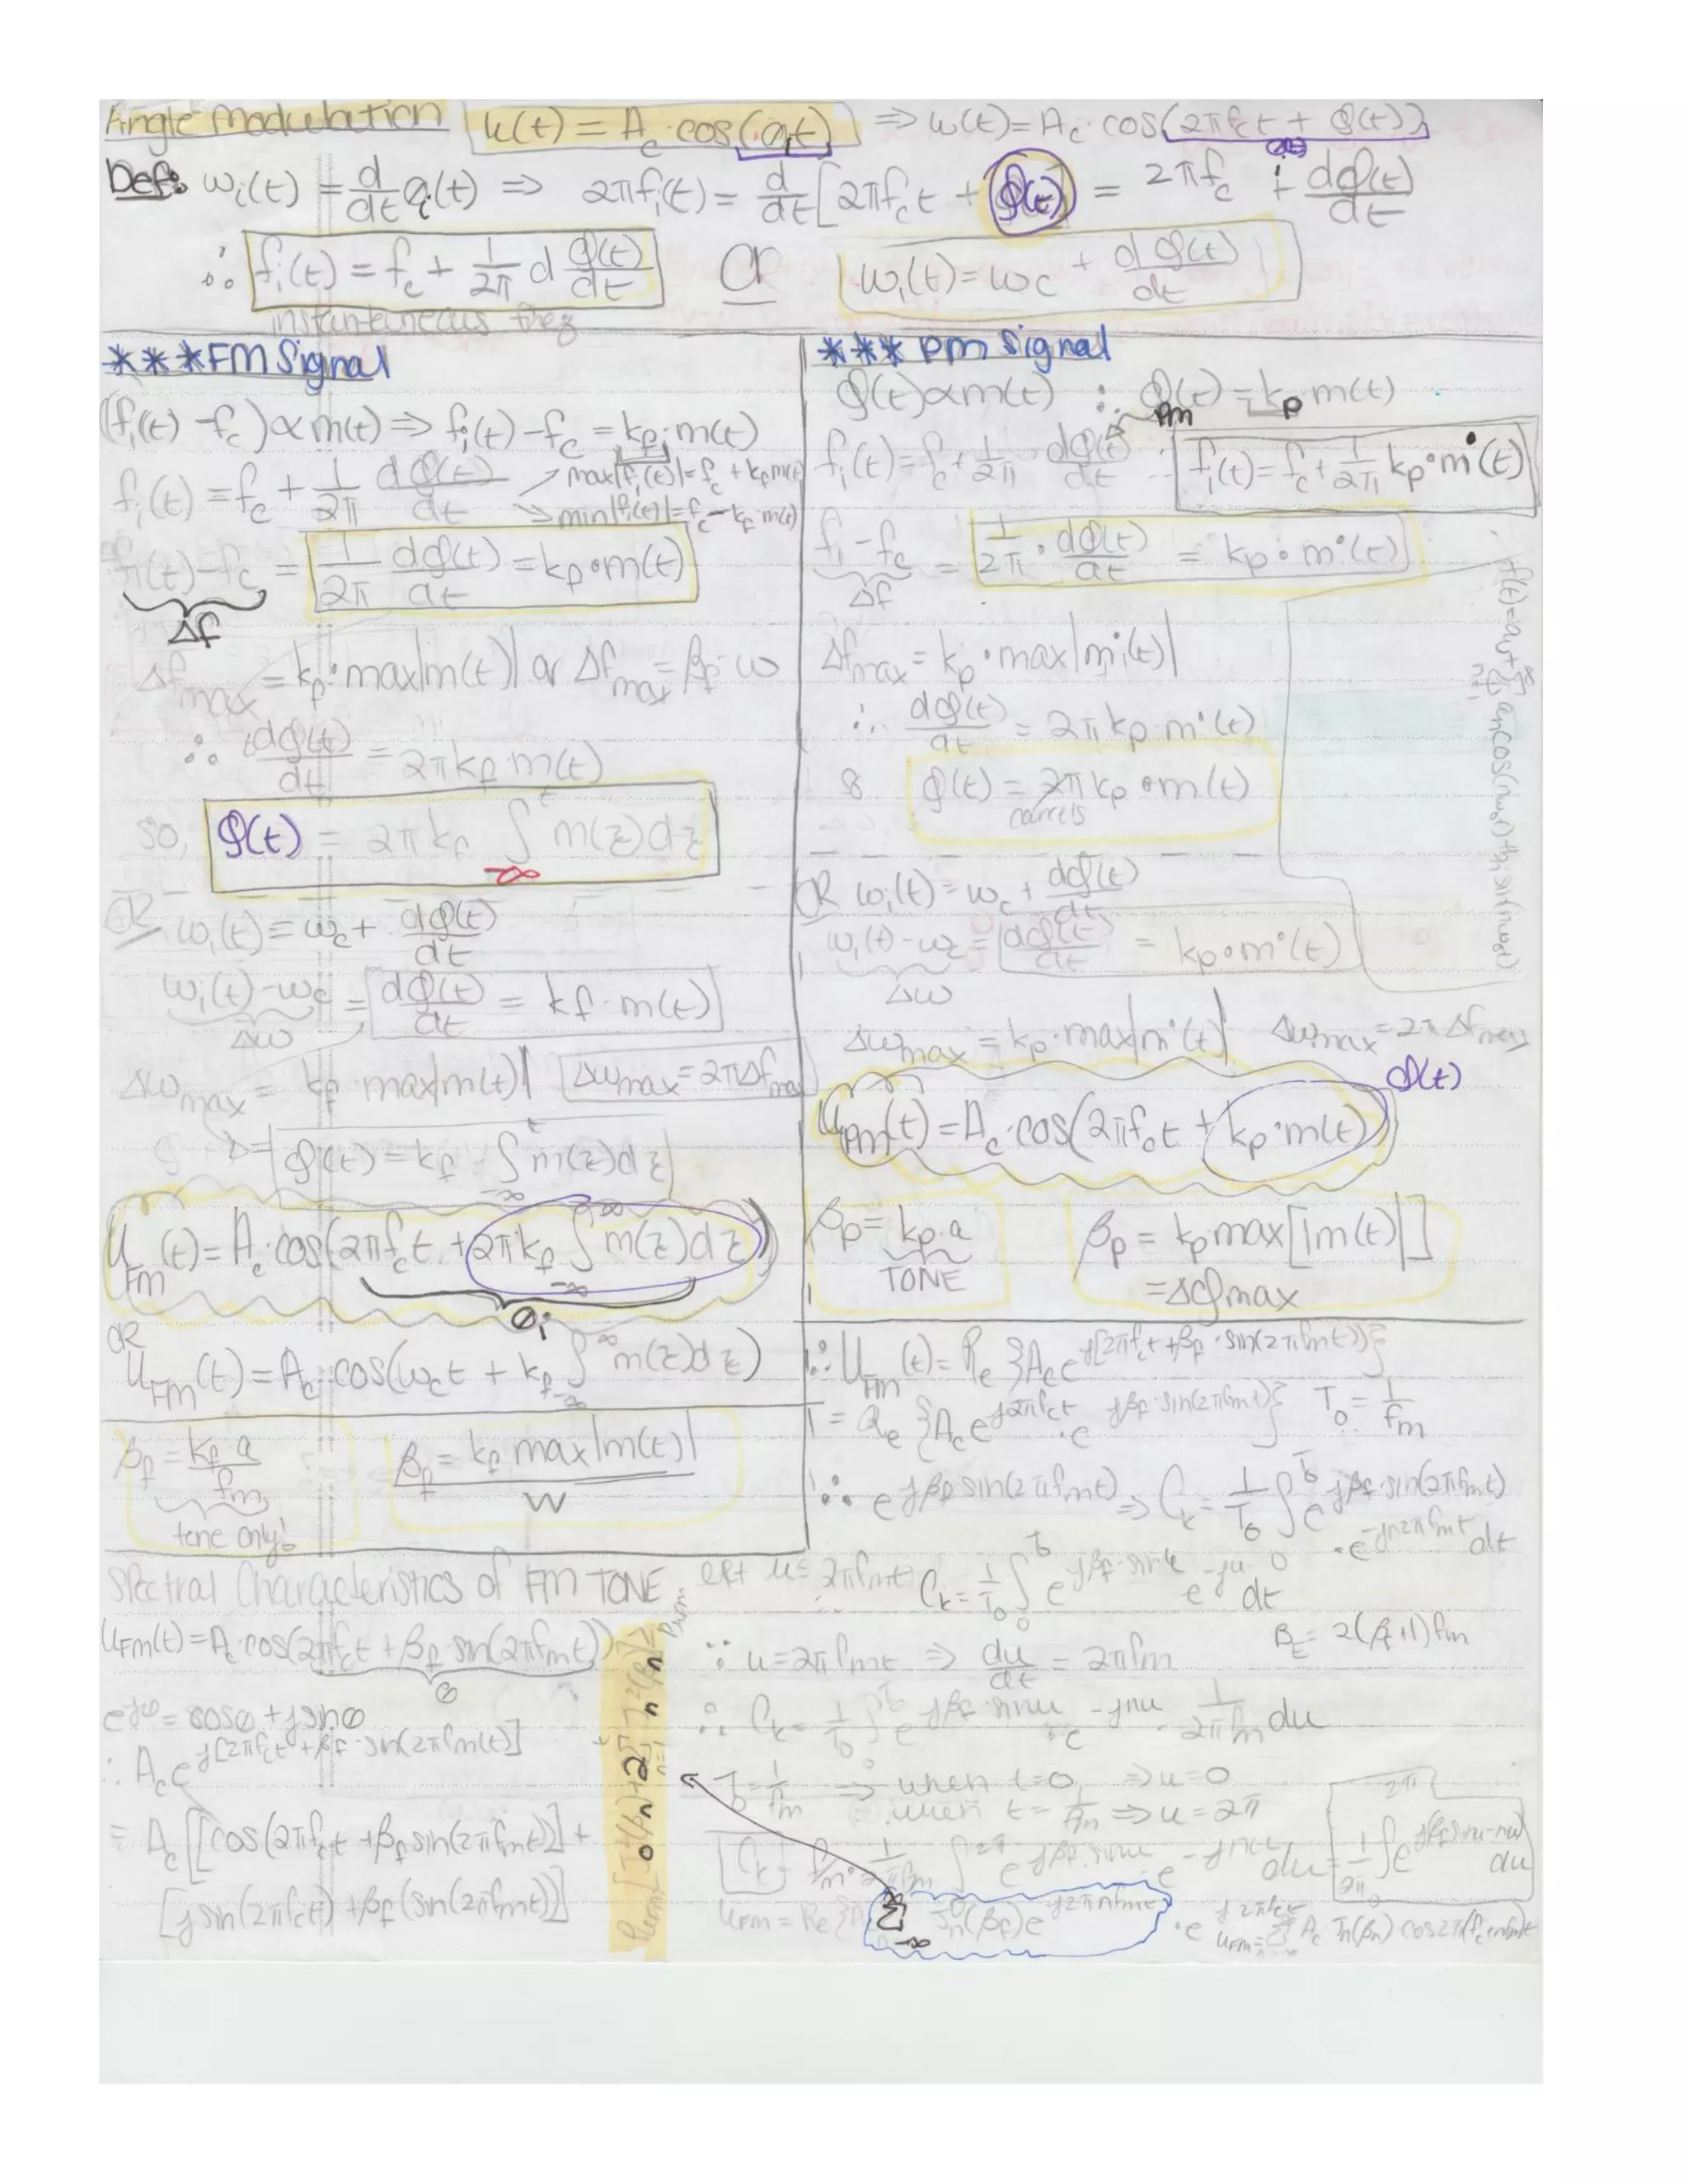 Angle Modulation u(t) = A_c · cos(θ_i t) ⇒ u(t) = A_c · cos(2πf_c t + φ(t))
Def: ω_i(t) = d/dt θ_i(t) ⇒ 2πf_i(t) = d/dt [2πf_c t + φ(t)] = 2πf_c + dφ(t)/dt
∴ f_i(t) = f_c + 1/2π d φ(t)/dt OR ω_i(t) = ωc + dφ(t)/dt
instantaneous freq
***FM Signal
(f_i(t) - f_c) ∝ m(t) ⇒ f_i(t) - f_c = k_f · m(t)
f_i(t) = f_c + 1/2π dφ(t)/dt
max|f_i(t)| = f_c + k_f m(t)
min|f_i(t)| = f_c - k_f · m(t)
f_i(t) - f_c = 1/2π dφ(t)/dt = k_f · m(t)
Δf
Δf_max = k_f · max|m(t)| or Δf_max = β_f · w
∴ dφ(t)/dt = 2πk_f · m(t)
so, φ(t) = 2πk_f ∫_-∞^t m(z)dz
OR ω_i(t) = ω_c + dφ(t)/dt
ω_i(t) - ω_c = dφ(t)/dt = kf · m(t)
Δω
Δω_max = k_f max|m(t)| Δω_max = 2πΔf_max
φ(t) = k_f · ∫_-∞^t m(z)dz
U_FM(t) = A_c · cos(2πf_c t + 2πk_f ∫_-∞^∞ m(z)dz)
θ_i
OR
U_FM(t) = A_c cos(ω_c t + k_f ∫_-∞^∞ m(z)dz)
β_f = k_f · a / f_m β_f = k_f max|m(t)| / W
tone only!
*** PM Signal
φ(t) ∝ m(t) ∴ φ(t) = k_p · m(t)
PM
f_i(t) = f_c + 1/2π · dφ(t)/dt ∴ f_i(t) = f_c + 1/2π k_p · m˙(t)
f_i - f_c = 1/2π · dφ(t)/dt = k_p · m˙(t)
Δf
Δf_max = k_p · max|m˙(t)|
∴ dφ(t)/dt = 2πk_p · m˙(t)
& φ(t) = 2πk_p · m(t)
cancels
OR ω_i(t) = ω_c + dφ(t)/dt
ω_i(t) - ω_c = dφ(t)/dt = k_p · m˙(t)
Δω
Δω_max = k_p · max|m˙(t)| Δω_max = 2πΔf_max
φ(t)
U_PM(t) = A_c · cos(2πf_c t + k_p · m(t))
β_p = k_p · a β_p = k_p max[|m(t)|]
TONE = Δφ_max
∴ U_FM(t) = Re {A_c e^j[2πf_c t + β_f · sin(2πf_m t)]}
= Re {A_c e^j2πf_c t · e^jβ_f · sin(2πf_m t)} T_0 = 1/f_m
∴ e^jβ_f sin(2πf_m t) ⇒ C_k = 1/T_0 ∫^T_0 e^jβ_f · sin(2πf_m t)
· e^-jn2πf_m t dt
Spectral Characteristics of FM TONE
U_FM(t) = A_c · cos(2πf_c t + β_f · sin(2πf_m t))
θ
e^jθ = cosθ + jsinθ
∴ A_c e^j[2πf_c t + β_f · sin(2πf_m(t)]
= A_c [[cos(2πf_c t + β_f sin(2πf_m t)] +
[jsin(2πf_c t) + β_f (sin(2πf_m t)]
let u = 2πf_m t C_k = 1/T_0 ∫_0^T_0 e^jβ_f · sinu e^-ju dt
B_t = 2(β_f + 1)f_m
∵ u = 2πf_m t ⇒ du/dt = 2πf_m
∴ C_k = 1/T_0 ∫_0^T_0 e^jβ_f · sinu · e^-jnu · 1/2πf_m du
T_0 = 1/f_m ⇒ when t=0, ⇒ u=0
when t = 1/f_m ⇒ u = 2π
C_k = f_m · 1/2πf_m ∫_0^2π e^jβ_f · sinu · e^-jnu du = 1/2π ∫_0^2π e^j(β_f sinu - nu) du
U_FM = Re {A Σ_-∞ J_n(β_f) e^j2πnf_m t · e^j2πf_c t